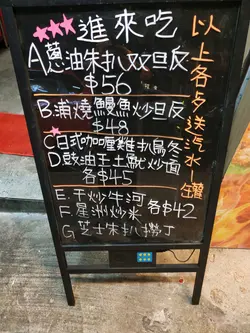 ★★★進來吃
A蔥油朱扒双旦反
$56
B.浦燒鰻魚炒旦反
$48
C日式咖喱雞扒烏冬
D豉油王土魷炒面
各$45
E.干炒牛河
F.星洲炒米 各$42
G芝士朱扒撈丁
以上各歺送汽水一罐